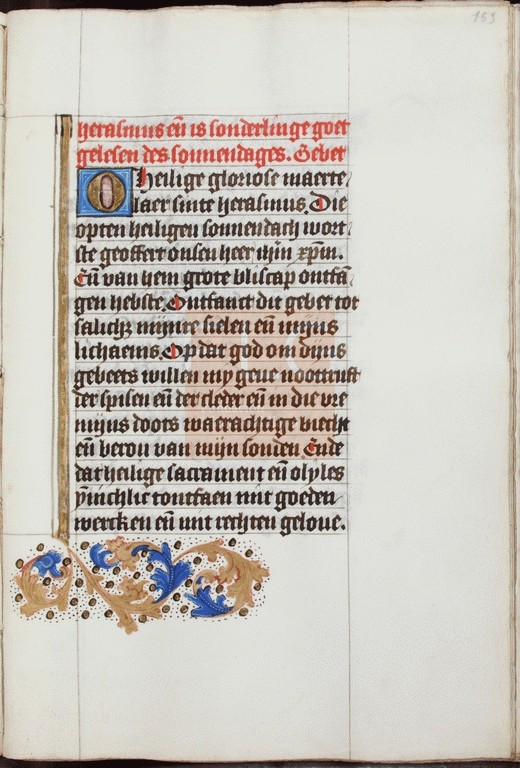 153
herasmus eñ is sonderlinge goet
gelesen des sonnendages. Gebet
O heilige gloriose maerte
laer sinte herasmus. Die
opten heiligen sonnendach wort
ste geoffert onsen heer ihm xpm.
Eñ van hem grote bliscap ontfā
gen hebste. Ontfanct dit gebet tot
salich mijnre sielen eñ mijns
lichaems. Op dat god om dijns
gebeets willen my geue noottruft
der spisen eñ der cleder eñ in die vre
mijns doots waerachtige biecht
eñ berou van mijn sonden Ende
dat heilige sacrament eñ olyles
ynichlic tontfaen mit goeden
wercken eñ mit rechten geloue.